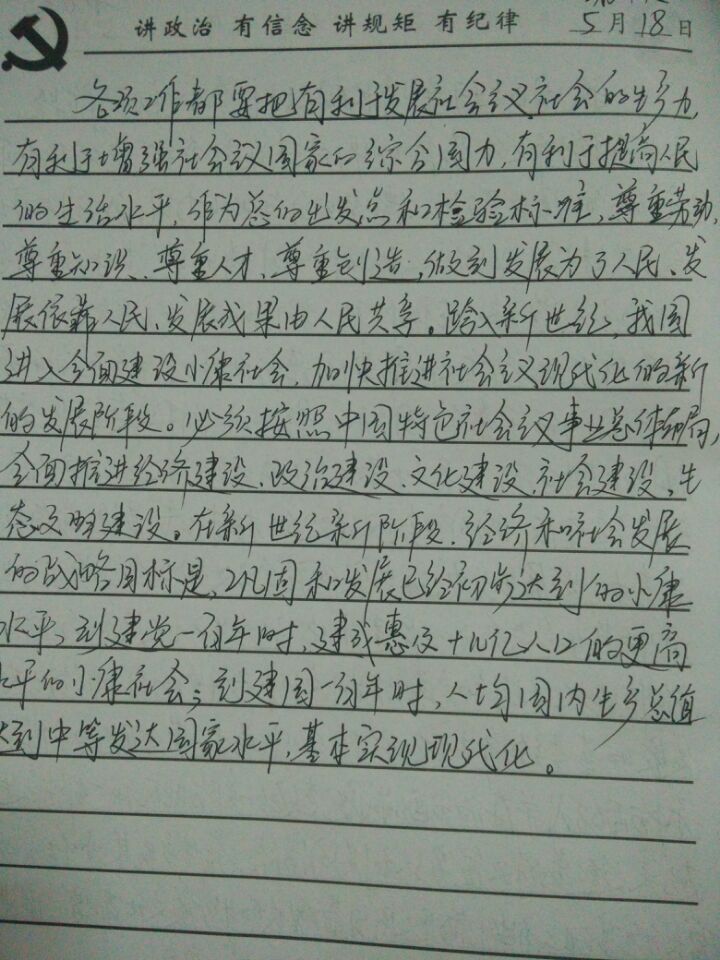 讲政治 有信念 讲规矩 有纪律
5月18日
各项工作都要把有利于发展社会主义社会的生产力,
有利于增强社会主义国家的综合国力,有利于提高人民
的生活水平,作为总的出发点和检验标准,尊重劳动,
尊重知识、尊重人才、尊重创造,做到发展为了人民、发
展依靠人民、发展成果由人民共享。跨入新世纪,我国
进入全面建设小康社会,加快推进社会主义现代化的新
的发展阶段。必须按照中国特色社会主义事业总体布局,
全面推进经济建设、政治建设、文化建设、社会建设、生
态文明建设。在新世纪新阶段,经济和社会发展
的战略目标是,巩固和发展已经初步达到的小康
水平,到建党一百年时,建成惠及十几亿人口的更高
水平的小康社会;到建国一百年时,人均国内生产总值
达到中等发达国家水平,基本实现现代化。